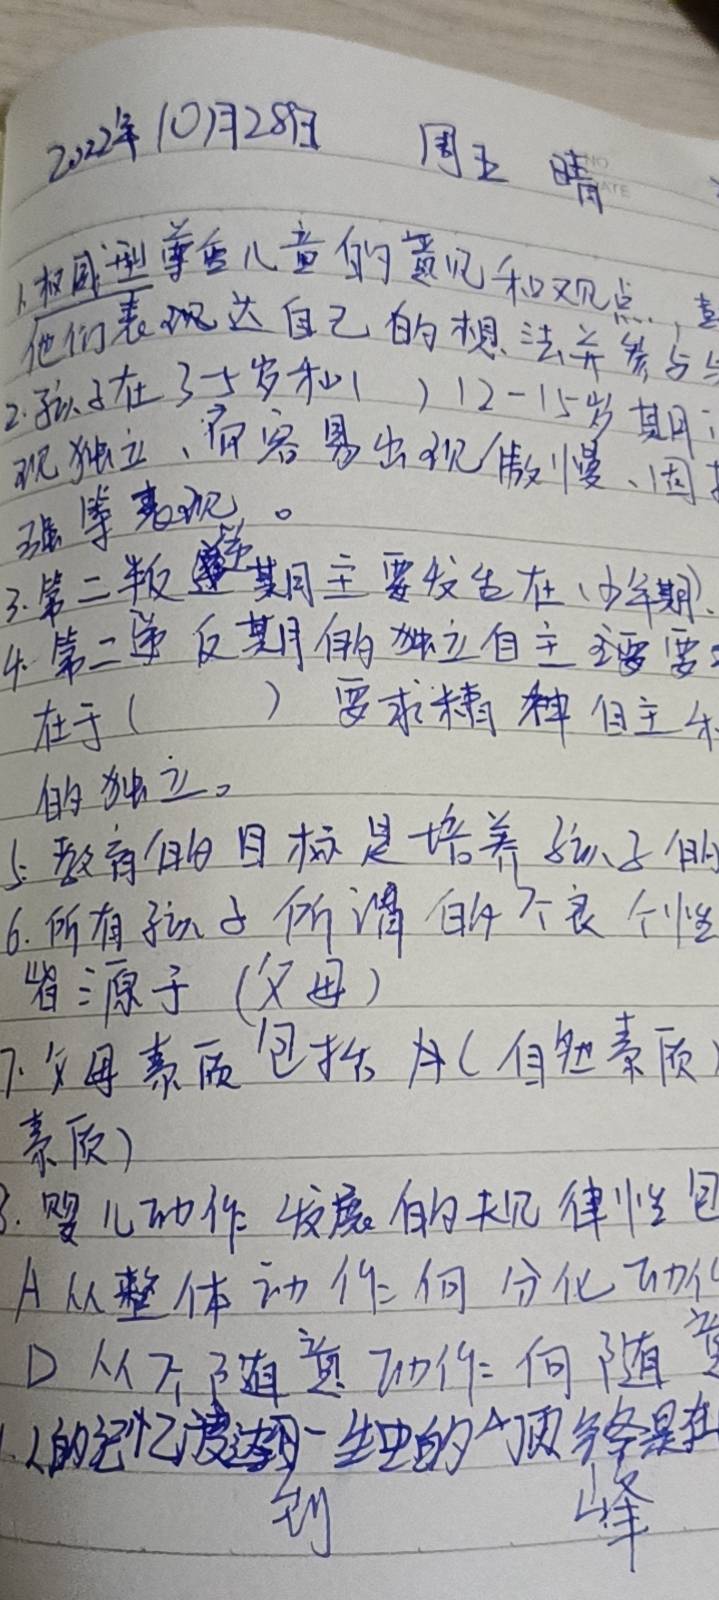 2022年10月28日 周五 晴
NO
DATE
1.权威型尊重儿童的意见和观点,
他们表现达自己的想法并参与
2.孩子在3-5岁和( )12-15岁期
现独立、而容易出现傲慢、固
强等表现。
3.第二叛逆期主要发生在(少年期)、
4.第二逆反期的独立自主主要要
在于( )要求精神自主和
的独立。
5.教育的目标是培养孩子的
6.所有孩子所谓的不良个性
皆源于(父母)
7.父母素质包括A(自然素质)
素质)
8.婴儿动作发展的规律性包
A从整体动作向分化动作
D从不随意动作向随意
1.人的记忆度达到一生中的 顶峰是在
到 峰